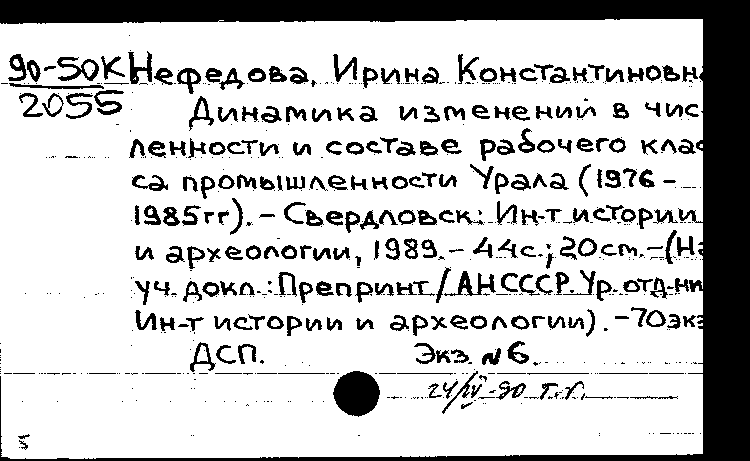 90-50К Нефедова, Ирина Константиновн
2055 Динамика изменений в чис
ленности и составе рабочего клас
са промышленности Урала (1976 -
1985гг). - Свердловск: Ин-т истории
и археологии, 1989. - 44с.; 20см. - (На
уч. докл.: Препринт / АН СССР. Ур. отд-ни
Ин-т истории и археологии). - 70экз
ДСП. Экз. №6.
24/IV-90 т.г.
5